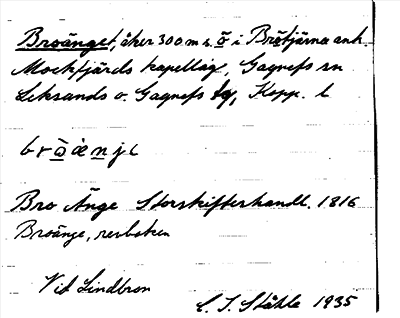 Broänget, åker 300 m s. ö i Brötjärna enh.
Mockfjärds kapellag, Gagnefs sn
Leksands o. Gagnefs tg, Kopp. l
Bro Änge Storskifteshandl. 1816
Broänge, renboken
Vid Lindbron
C. I. Ståhle 1935